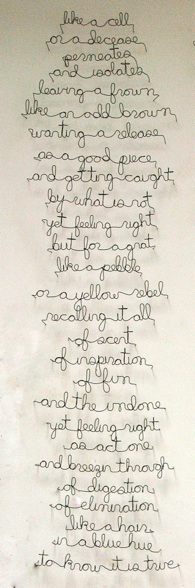 like a cell
or a decease
permeates
and isolates
leaving a frown
like an odd brown
wanting a release
as a good piece
and getting caught
by what is not
yet feeling right
but for a gnat
like a pebble
or a yellow rebel
recalling it all
of scent
of inspiration
of fun
and the undone
yet feeling right
as act one
and breezin through
of digestion
of elimination
like a hair
in a blue hue
to know it is true